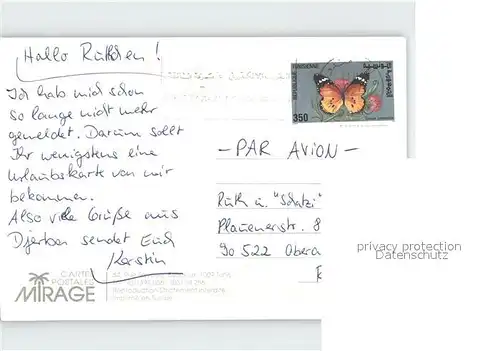 Hallo Rüthchen!
Ich hab mich schon
so lange nicht mehr
gemeldet. Darum sollt
Ihr wenigstens eine
Urlaubskarte von mir
bekommen.
Also viele Grüße aus
Djerba sendet Euch
Kerstin
CARTES
POSTALES
MIRAGE
REPUBLIQUE
TUNISIENNE
350
- PAR AVION -
Ruth u. "Schatzi"
Plauenerstr. 8
90522 Obera
privacy protection
Datenschutz